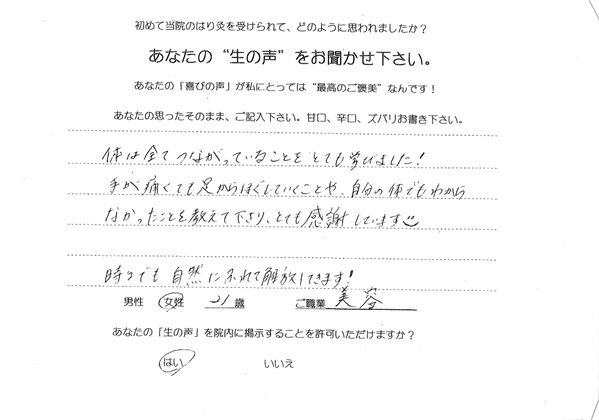 初めて当院のはり灸を受けられて、どのように思われましたか？
あなたの “生の声” をお聞かせ下さい。
あなたの「喜びの声」が私にとっては “最高のご褒美” なんです！
あなたの思ったそのまま、ご記入下さい。甘口、辛口、ズバリお書き下さい。
体は全てつながっていることをとても学びました！
手が痛くても足からほぐしていくことや、自分の体でもわから
なかったことを教えて下さり、とても感謝しています
時々でも自然にふれて解放してきます！
男性 女性 21 歳 ご職業 美容
あなたの「生の声」を院内に掲示することを許可いただけますか？
はい いいえ